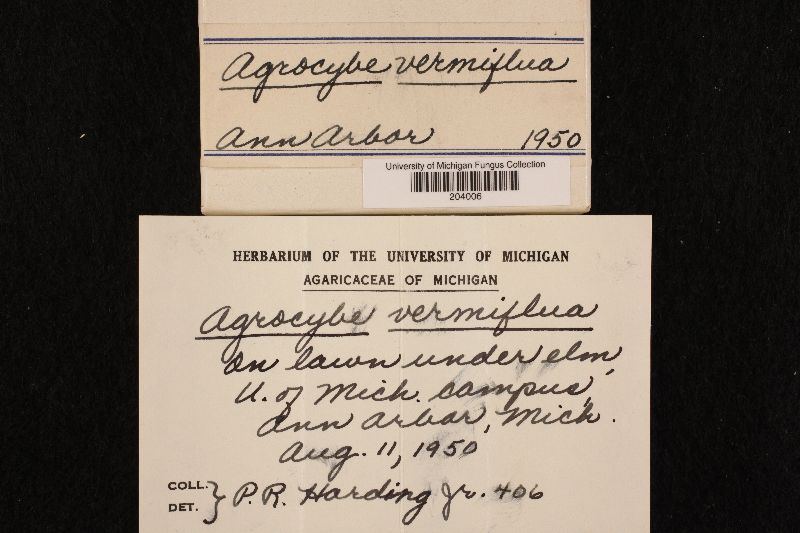 Agrocybe vermiflua
Ann Arbor 1950
University of Michigan Fungus Collection
204006
HERBARIUM OF THE UNIVERSITY OF MICHIGAN
AGARICACEAE OF MICHIGAN
Agrocybe vermiflua
On lawn under elm,
U. of Mich. campus,
Ann Arbor, Mich.
Aug. 11, 1950
COLL. DET. } P.R. Harding Jr. 406